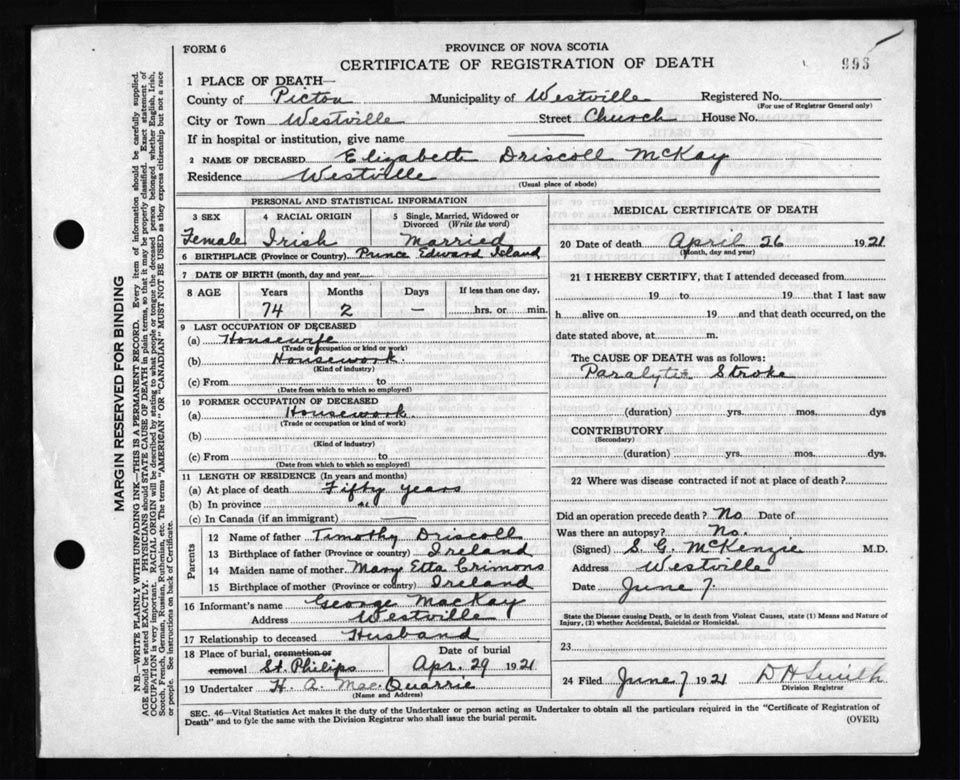 FORM 6
PROVINCE OF NOVA SCOTIA
CERTIFICATE OF REGISTRATION OF DEATH
993
1 PLACE OF DEATH—
County of Pictou Municipality of Westville Registered No.
(For use of Registrar General only)
City or Town Westville Street Church House No.
If in hospital or institution, give name
2 NAME OF DECEASED Elizabeth Driscoll McKay
Residence Westville
(Usual place of abode)
MARGIN RESERVED FOR BINDING
N.B.—WRITE PLAINLY WITH UNFADING INK—THIS IS A PERMANENT RECORD. Every item of information should be carefully supplied.
AGE should be stated EXACTLY. PHYSICIANS should STATE CAUSE OF DEATH in plain terms, so that it may be properly classified. Exact statement of
OCCUPATION is very important. RACIAL ORIGIN will be described by stating to what people or tongue the deceased person belonged whether English, Irish,
Scotch, French, German, Russian, Ruthenian, etc. The terms "AMERICAN" OR "CANADIAN" MUST NOT BE USED as they express citizenship but not a race
or people. See instructions on back of Certificate.
PERSONAL AND STATISTICAL INFORMATION
3 SEX 4 RACIAL ORIGIN 5 Single, Married, Widowed or
Divorced (Write the word)
Female Irish Married
6 BIRTHPLACE (Province or Country) Prince Edward Island
7 DATE OF BIRTH (month, day and year)
8 AGE Years Months Days If less than one day,
74 2 — hrs. or min.
9 LAST OCCUPATION OF DECEASED
(a) Housewife
(Trade or occupation or kind of work)
(b) Housework.
(Kind of industry)
(c) From to
(Date from which to which so employed)
10 FORMER OCCUPATION OF DECEASED
(a) Housework.
(Trade or occupation or kind of work)
(b)
(Kind of industry)
(c) From to
(Date from which to which so employed)
11 LENGTH OF RESIDENCE (In years and months)
(a) At place of death Fifty years
(b) In province "
(c) In Canada (if an immigrant)
Parents
12 Name of father Timothy Driscoll
13 Birthplace of father (Province or country) Ireland
14 Maiden name of mother Mary Etta Crimons
15 Birthplace of mother (Province or country) Ireland
16 Informant's name George MacKay
Address Westville
17 Relationship to deceased Husband
18 Place of burial, cremation or Date of burial
removal St. Philips Apr. 29 1921
19 Undertaker H. A. MacQuarrie
(Name and Address)
MEDICAL CERTIFICATE OF DEATH
20 Date of death April 26 1921
(Month, day and year)
21 I HEREBY CERTIFY, that I attended deceased from
19 to 19 that I last saw
h alive on 19 and that death occurred, on the
date stated above, at m.
The CAUSE OF DEATH was as follows:
Paralytic Stroke
(duration) yrs. mos. dys
CONTRIBUTORY
(Secondary)
(duration) yrs. mos. dys.
22 Where was disease contracted if not at place of death?
Did an operation precede death? No Date of
Was there an autopsy? No.
(Signed) S. G. McKenzie M.D.
Address Westville
Date June 7.
State the Disease causing Death, or in death from Violent Causes, state (1) Means and Nature of
Injury, (2) whether Accidental, Suicidal or Homicidal.
23
24 Filed June 7 1921 D H Smith
Division Registrar
SEC. 46—Vital Statistics Act makes it the duty of the Undertaker or person acting as Undertaker to obtain all the particulars required in the "Certificate of Registration of
Death" and to fyle the same with the Division Registrar who shall issue the burial permit.
(OVER)